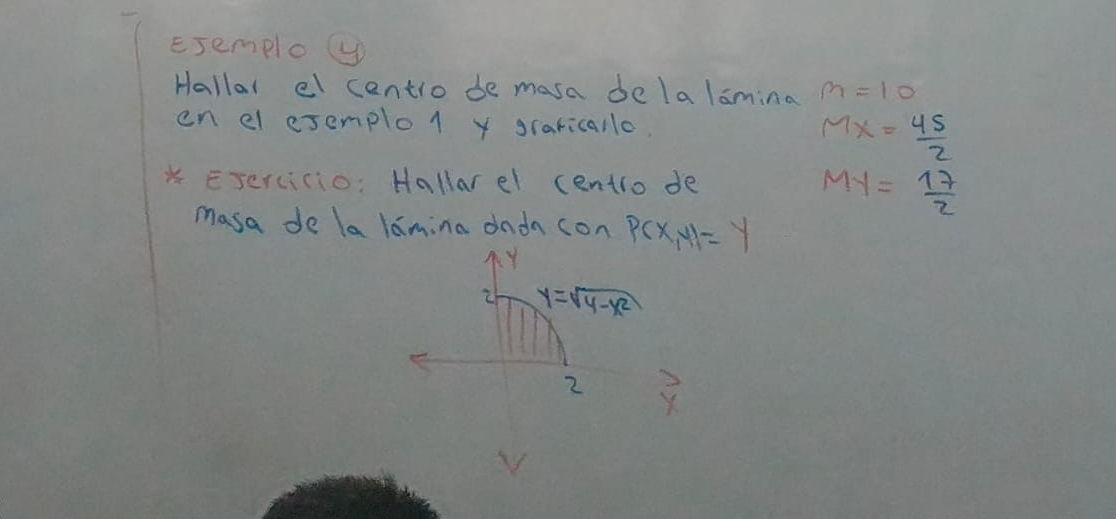 Ejemplo 4
Hallar el centro de masa de la lámina
en el ejemplo 1 y graficarlo.
m=10
Mx= 45/2
My= 17/2
* Ejercicio: Hallar el centro de
masa de la lámina dada con P(x,y)= y
y
2
y=√4-x2
2
x